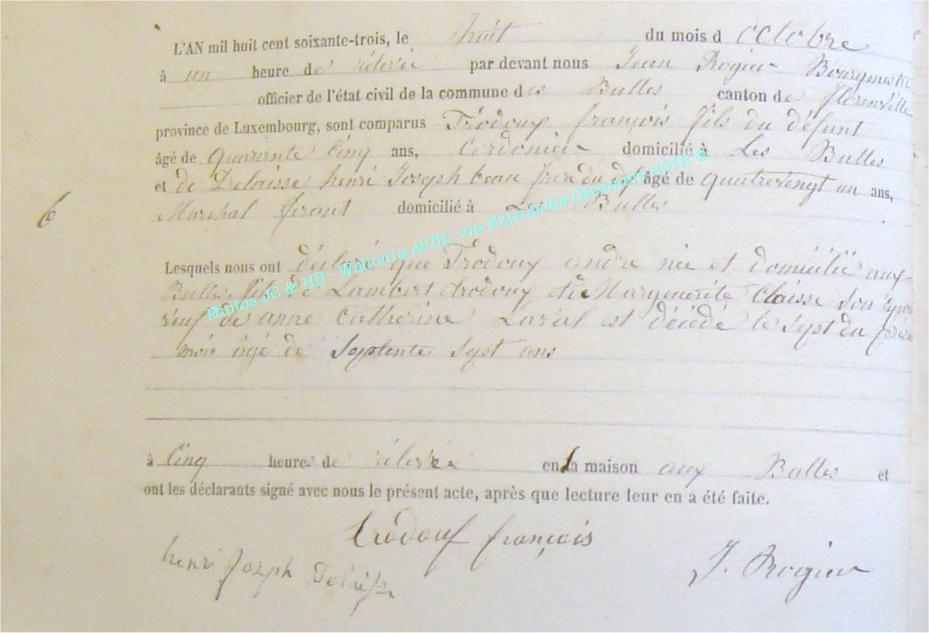 L'AN mil huit cent soixante-trois, le huit du mois d octobre
à un heure de rélevée par devant nous Jean Rogier Bourgmestre
officier de l'état civil de la commune des Bulles canton de florenville
province de Luxembourg, sont comparus Trodoux françois fils du défunt
âgé de quarante cinq ans, Cordonier domicilié à Les Bulles
et de Delaisse henri Joseph beau frere du âgé de quatrevengt un ans,
6
Marshal ferant domicilié à Les Bulles
Photos JC & HB - Wallonia ASBL via Expoactes Décembre 2012 ©
Lesquels nous ont déclaré que Trodoux andre née et domicilié aux
Bulles fils de Lambert trodoux et de Marguerite Claisse son
veuf de anne Catherine est décédé le sept du
mois agé de septente sept ans
à Cinq heures de rélevée en la maison aux Bulles et
ont les déclarants signé avec nous le présent acte, après que lecture leur en a été faite.
trodoux françois
henri Joseph Delaisse
J. Rogier